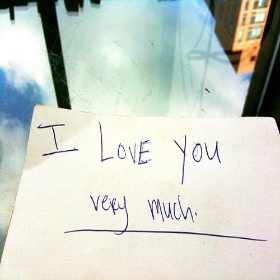 I LOVE YOU
very much.